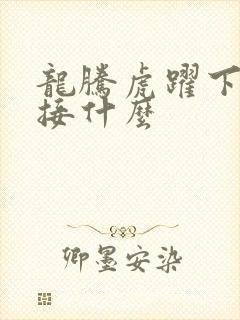 龍騰虎躍下
接什麼
卿墨安染